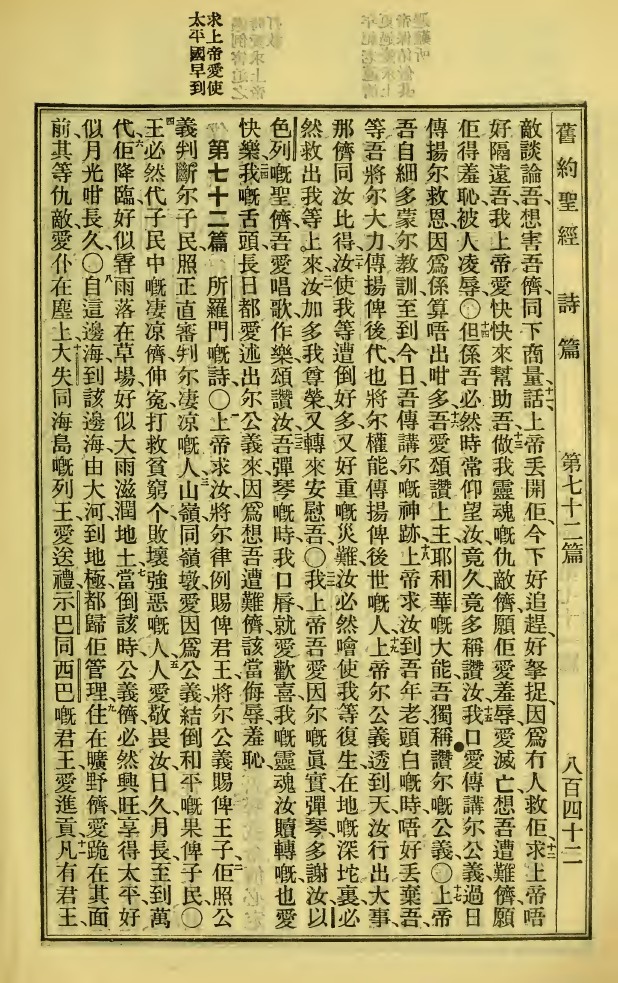 舊約聖經 詩篇 第七十二篇 八百四十二
敵談論吾、想害吾儕同下商量、十一話上帝丢開佢、今下好追趕、好拏捉、因爲冇人救佢、十二求上帝唔
好隔遠吾、我上帝愛快快來幫助吾、十三做我靈魂嘅仇敵儕願佢愛羞辱愛滅亡、想吾遭難儕願
佢得羞恥被人凌辱、〇十四但係吾必然時常仰望汝、竟久竟多稱讚汝、十五我口愛傳講尔公義、過日
傳揚尔救恩、因爲係算唔出咁多、十六吾愛頌讚上主耶和華嘅大能、吾獨稱讚尔嘅公義、〇十七上帝
吾自細多蒙尔教訓、至到今日、吾傳講尔嘅神跡、十八上帝求汝到吾年老頭白嘅時、唔好丢棄吾、
等吾將尔大力傳揚俾後代、也將尔權能傳揚俾後世嘅人、十九上帝尔公義透到天、汝行出大事、
那儕同汝比得、二十汝使我等遭倒好多又好重嘅災難、汝必然噲使我等復生、在地嘅深坨裏必
然救出我等上來、二一汝加多我尊榮、又轉來安慰吾、〇二二我上帝吾愛因尔嘅眞實、彈琴多謝汝、以
色列嘅聖儕吾愛唱歌作樂頌讚汝、二三吾彈琴嘅時、我口脣就愛歡喜、我嘅靈魂汝贖轉嘅也愛
快樂、二四我嘅舌頭長日都愛述出尔公義來、因爲想吾遭難儕、該當侮辱羞恥、
第七十二篇 所羅門嘅詩、〇一上帝求汝將尔律例賜俾君王、將尔公義賜俾王子、二佢照公
義判斷尔子民、照正直審判尔凄涼嘅人、三山嶺同嶺墩愛因爲公義結倒和平嘅果俾子民、〇
四王必然代子民中嘅凄凉儕伸寃、打救貧窮个、敗壞強惡嘅人、五人愛敬畏汝、日久月長至到萬
代、六佢降臨好似霤雨落在草場、好似大雨滋潤地土、七當倒該時公義儕必然興旺、享得太平、好
似月光咁長久、〇八自這邊海到該邊海、由大河到地極、都歸佢管理、九住在曠野儕、愛跪在其面
前、其等仇敵愛仆在塵上、十大失同海島嘅列王愛送禮、示巴同西巴嘅君王愛進貢、十一凡有君王、
求上帝愛使
太平國早到